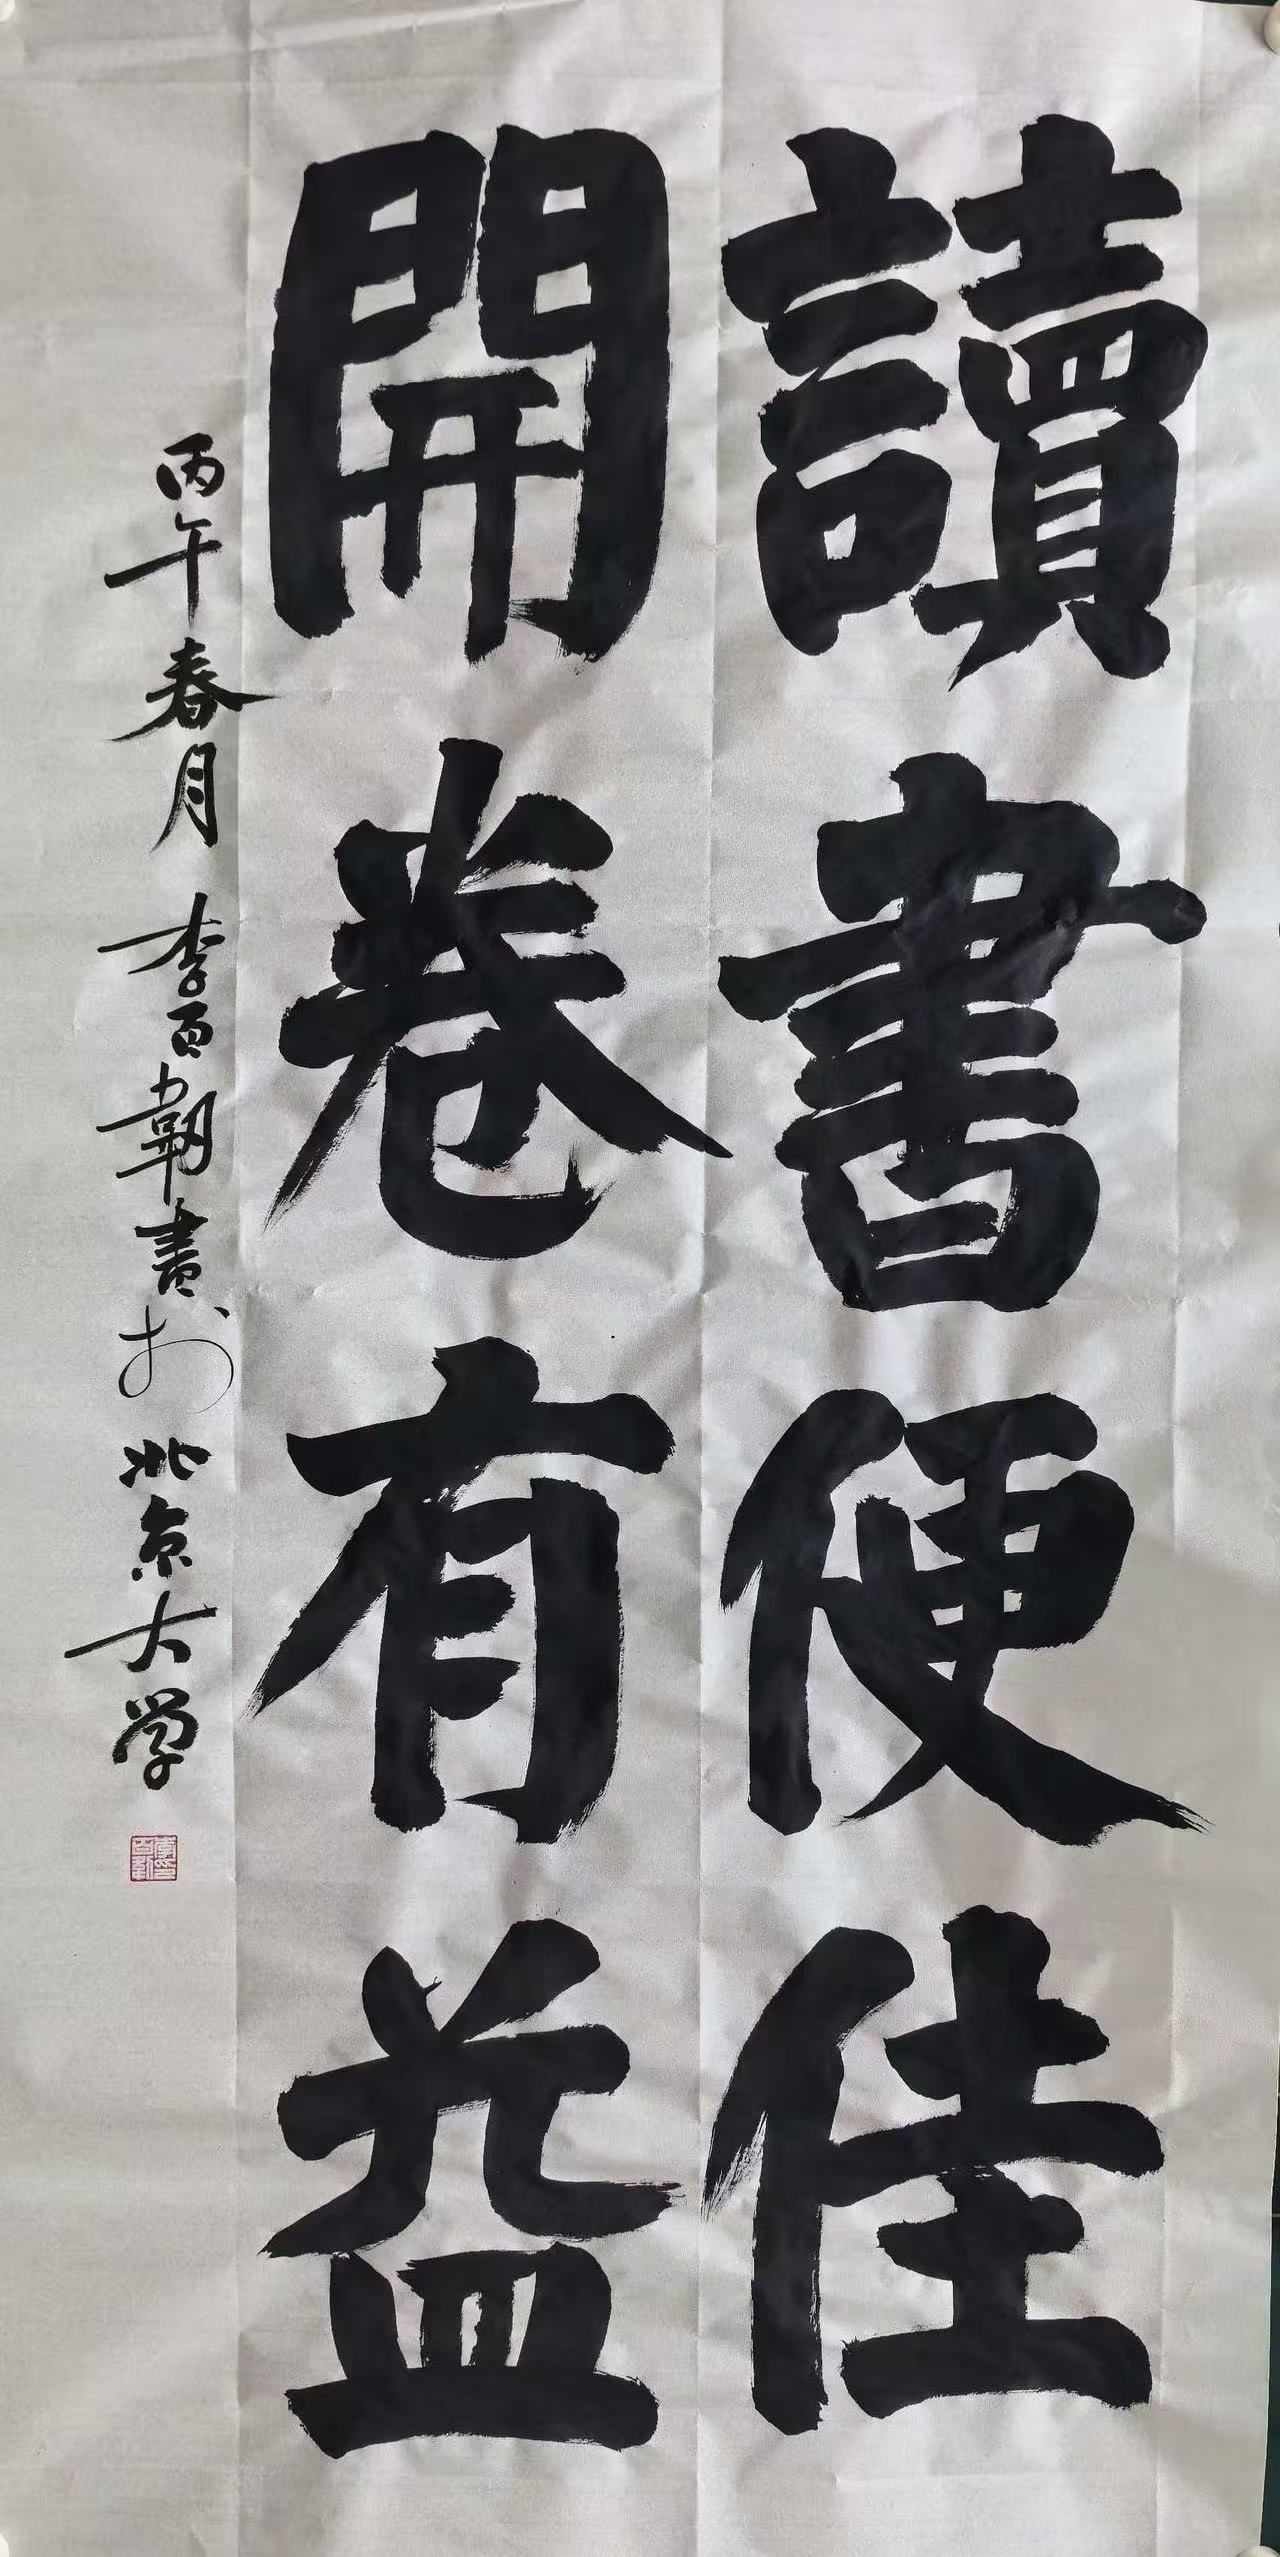 讀書便佳
開卷有益
丙午春月 李百韌書於北京大学